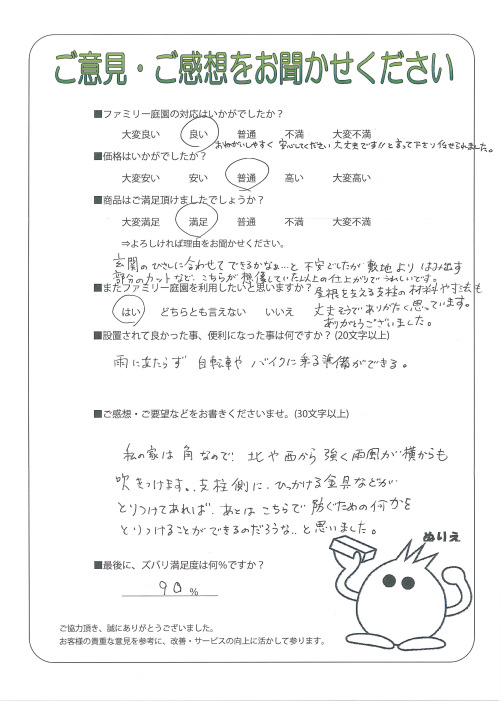 ご意見・ご感想をお聞かせください
■ファミリー庭園の対応はいかがでしたか?
大変良い 良い 普通 不満 大変不満
おねがいしやすく 安心してください 大丈夫です!!と言って下さり任せられました。
■価格はいかがでしたか?
大変安い 安い 普通 高い 大変高い
■商品はご満足頂けましたでしょうか?
大変満足 満足 普通 不満 大変不満
⇒よろしければ理由をお聞かせください。
玄関のひさしに合わせてできるかなぁ…と 不安でしたが 敷地より はみ出す
部分のカットなど、こちらが想像していた以上の仕上がりでうれしいです。
■またファミリー庭園を利用したいと思いますか?
屋根を支える支柱の材料や寸法も
はい どちらとも言えない いいえ
丈夫そうでありがたく思っています。
ありがとうございました。
■設置されて良かった事、便利になった事は何ですか? (20文字以上)
雨にあたらず 自転車や バイクに乗る準備ができる。
■ご感想・ご要望などをお書きくださいませ。(30文字以上)
私の家は角なので! 北や西から強く雨風が横からも
吹きつけます。支柱側に、ひっかける金具などが
とりつけてあれば、あとはこちらで防ぐための何かを
とりつけることができるのだろうな..と思いました。
ぬりえ
■最後に、ズバリ満足度は何%ですか?
90 %
ご協力頂き、誠にありがとうございました。
お客様の貴重な意見を参考に、改善・サービスの向上に活かして参ります。